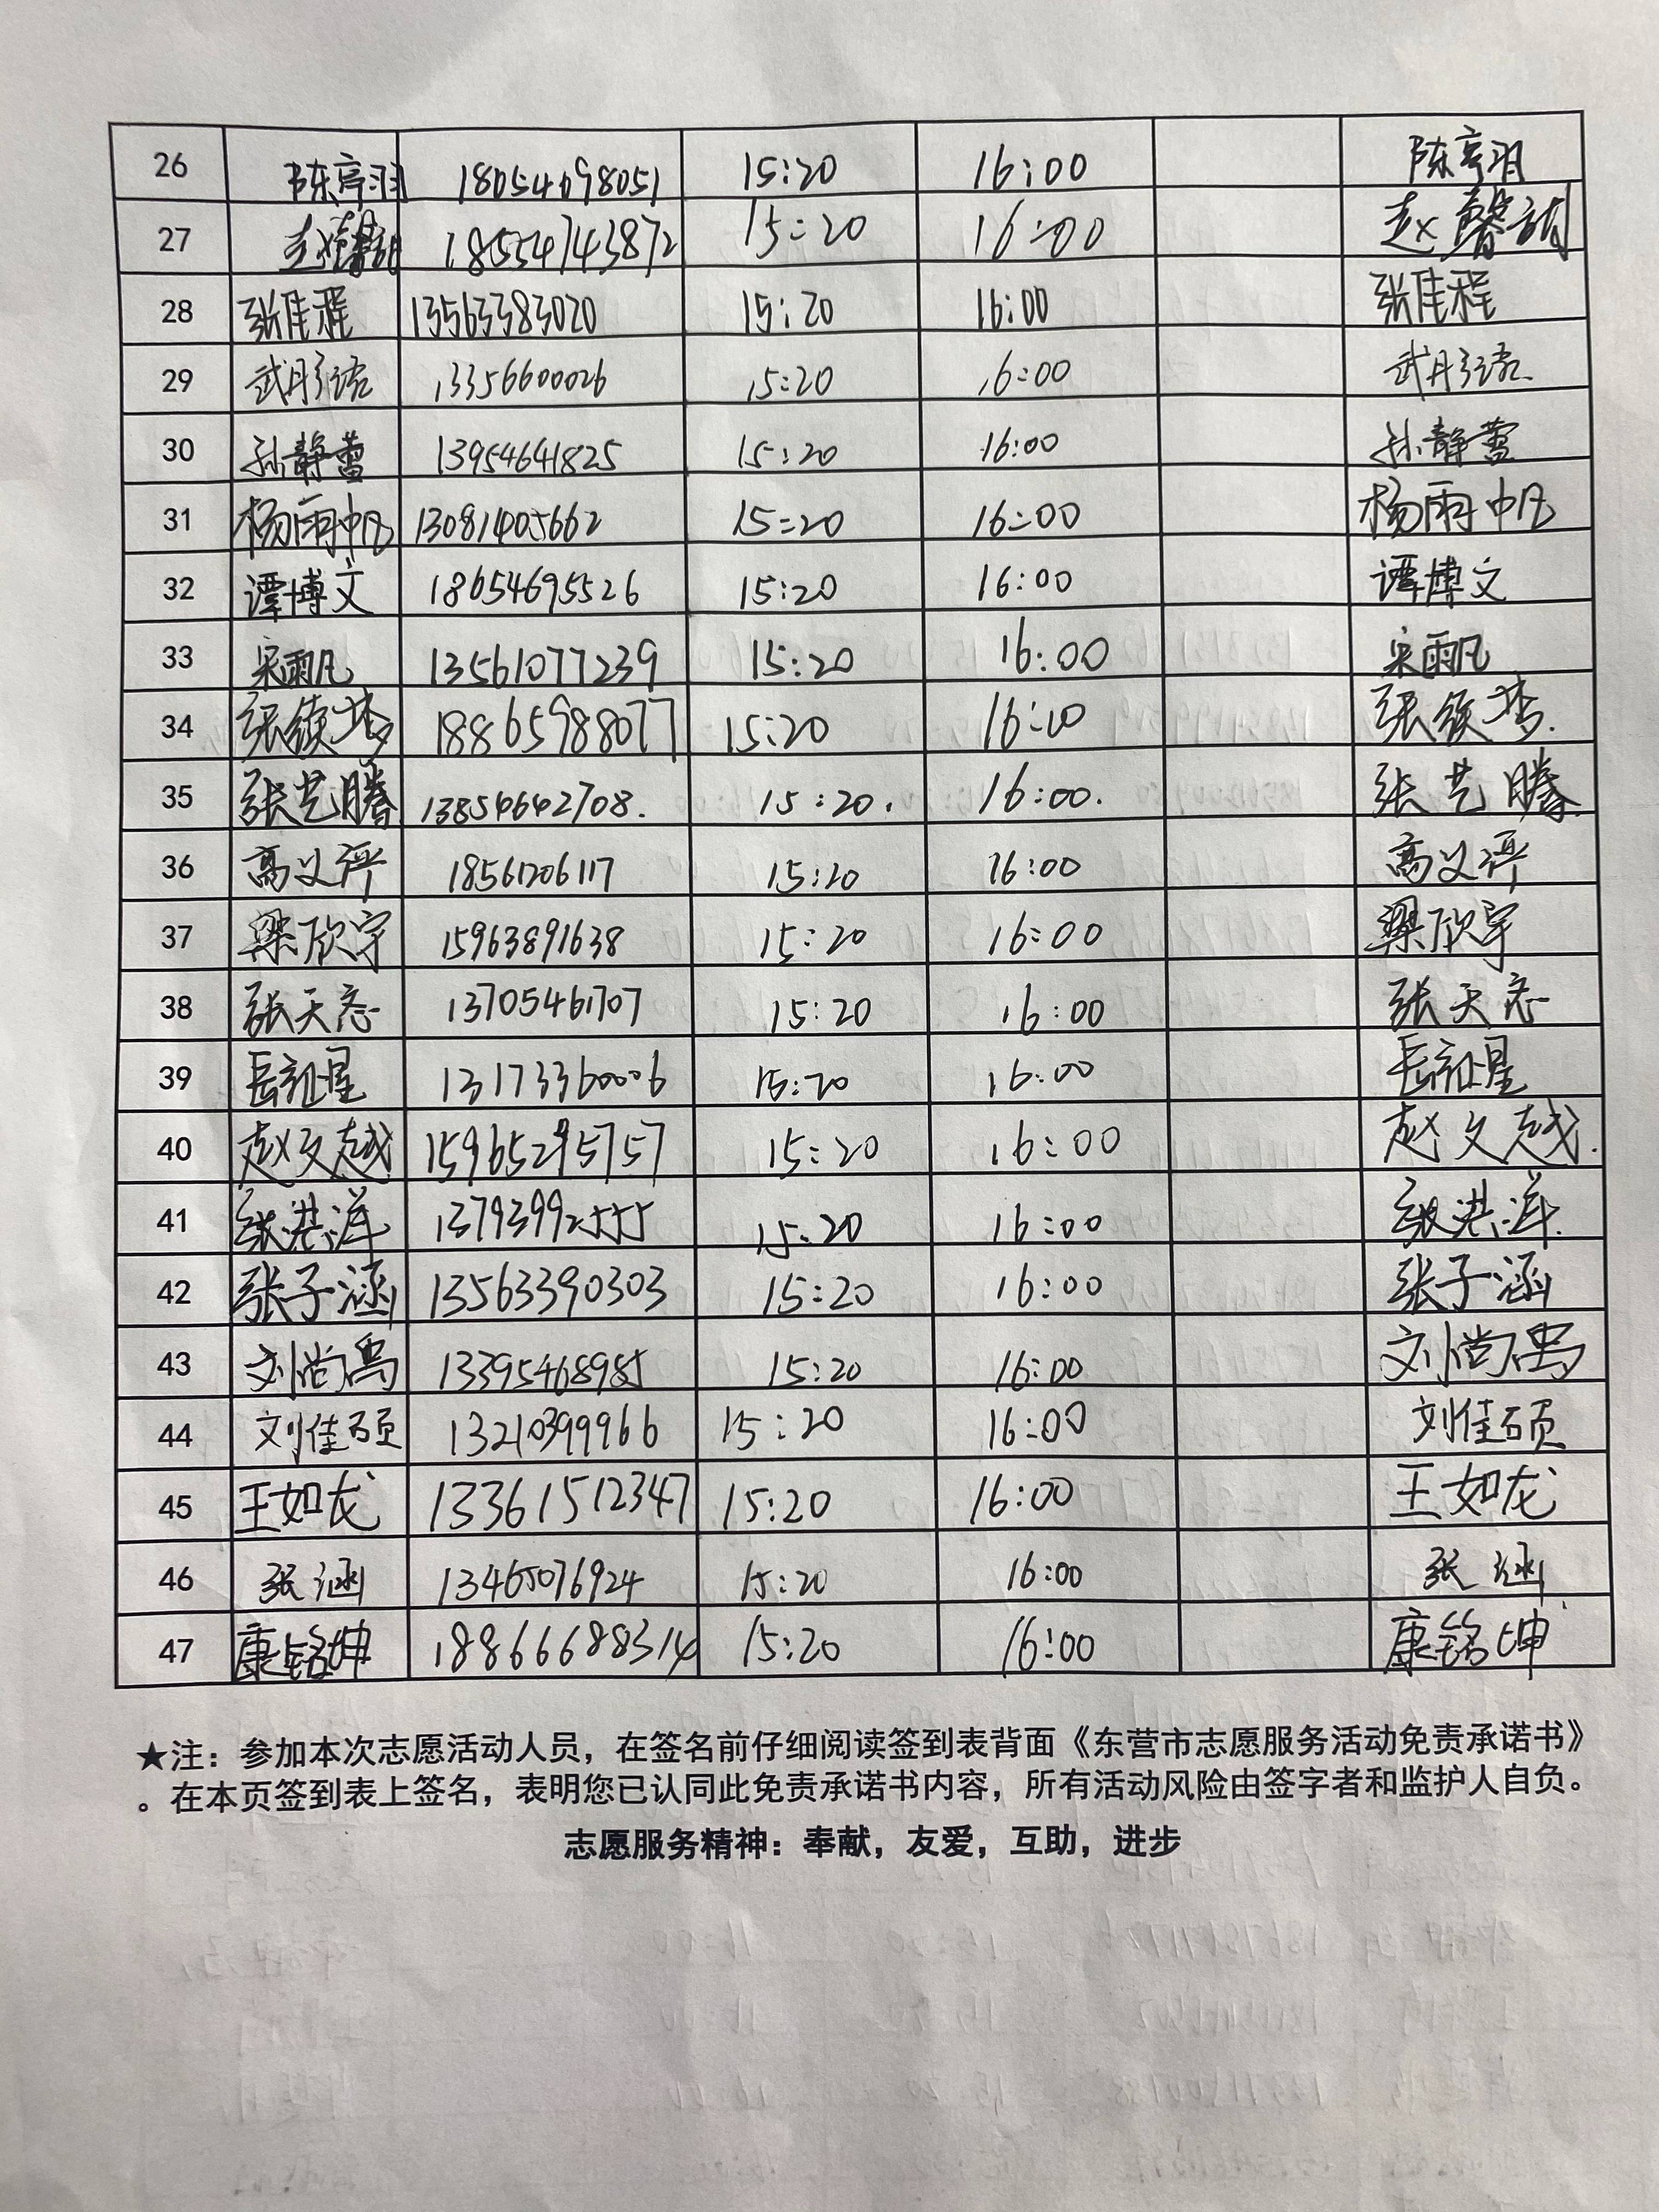 26 陈亭羽 18054698051 15:20 16:00 陈亭羽
27 赵馨 15:20 16:00 赵馨
28 张佳程 13563383020 15:20 16:00 张佳程
29 武彤语 13356600026 15:20 16:00 武彤语
30 孙静蕾 13954641825 15:20 16:00 孙静蕾
31 杨雨帆 13081405662 15:20 16:00 杨雨帆
32 谭博文 18654695526 15:20 16:00 谭博文
33 宋雨凡 13561077239 15:20 16:00 宋雨凡
34 张 梦 18865988077 15:20 16:00 张 梦.
35 张艺腾 13854642708. 15:20. 16:00. 张艺腾.
36 高义评 18561206117 15:20 16:00 高义评
37 梁欣宇 15963891638 15:20 16:00 梁欣宇
38 张天态 13705461707 15:20 16:00 张天态
39 岳征星 13173360006 15:20 16:00 岳征星
40 赵文越 15965295757 15:20 16:00 赵文越.
41 张洪洋 13793992555 15:20 16:00 张洪洋.
42 张子涵 13563390303 15:20 16:00 张子涵
43 刘尚禹 13395468985 15:20 16:00 刘尚禹
44 刘佳硕 13210399966 15:20 16:00 刘佳硕
45 王如龙 13361512347 15:20 16:00 王如龙
46 张涵 13465076924 15:20 16:00 张涵
47 康铭坤 18866688314 15:20 16:00 康铭坤
★注：参加本次志愿活动人员，在签名前仔细阅读签到表背面《东营市志愿服务活动免责承诺书》
。在本页签到表上签名，表明您已认同此免责承诺书内容，所有活动风险由签字者和监护人自负。
志愿服务精神：奉献，友爱，互助，进步